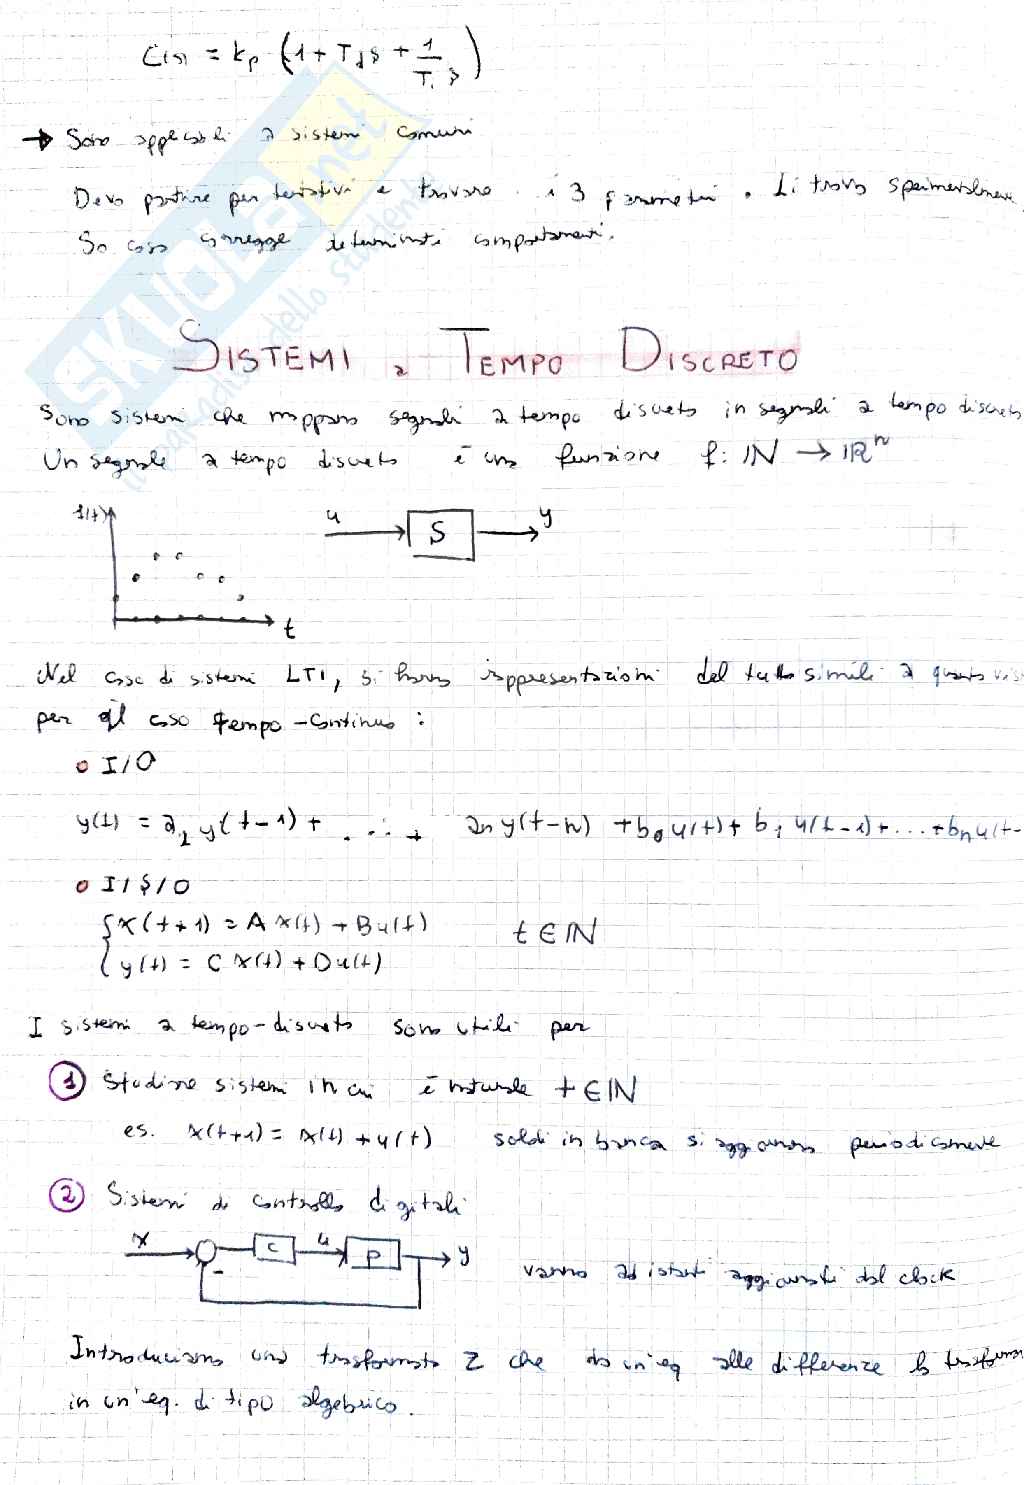 C(s) = kp (1 + Tds + 1/Tis)
→ Sono applicabili a sistemi comuni
Devo partire per tentativi e trovare i 3 parametri. Li trovo sperimentalmente.
So cosa corregge determinati comportamenti.
SISTEMI a TEMPO DISCRETO
Sono sistemi che mappano segnali a tempo discreto in segnali a tempo discreto
Un segnale a tempo discreto è una funzione f: ℕ → ℝⁿ
f(t)
u S y
t
Nel caso di sistemi LTI, si hanno rappresentazioni del tutto simili a quanto vis
per il caso tempo-continuo:
• I/O
y(t) = a1 y(t-1) + ... + an y(t-n) + b0 u(t) + b1 u(t-1) + ... + bn u(t-
• I/S/O
{ x(t+1) = A x(t) + B u(t) t ∈ ℕ
y(t) = C x(t) + D u(t)
I sistemi a tempo-discreto sono utili per
1 Studiare sistemi in cui è naturale t ∈ ℕ
es. x(t+1) = x(t) + u(t) soldi in banca si aggiornano periodicamente
2 Sistemi di controllo digitali
x - C u P y
vanno ad istanti aggiornati dal clock
Introduciamo una trasformata Z che da un'eq alle differenze la trasforma
in un'eq. di tipo algebrico.
SKUOLA.net
il paradiso dello studente